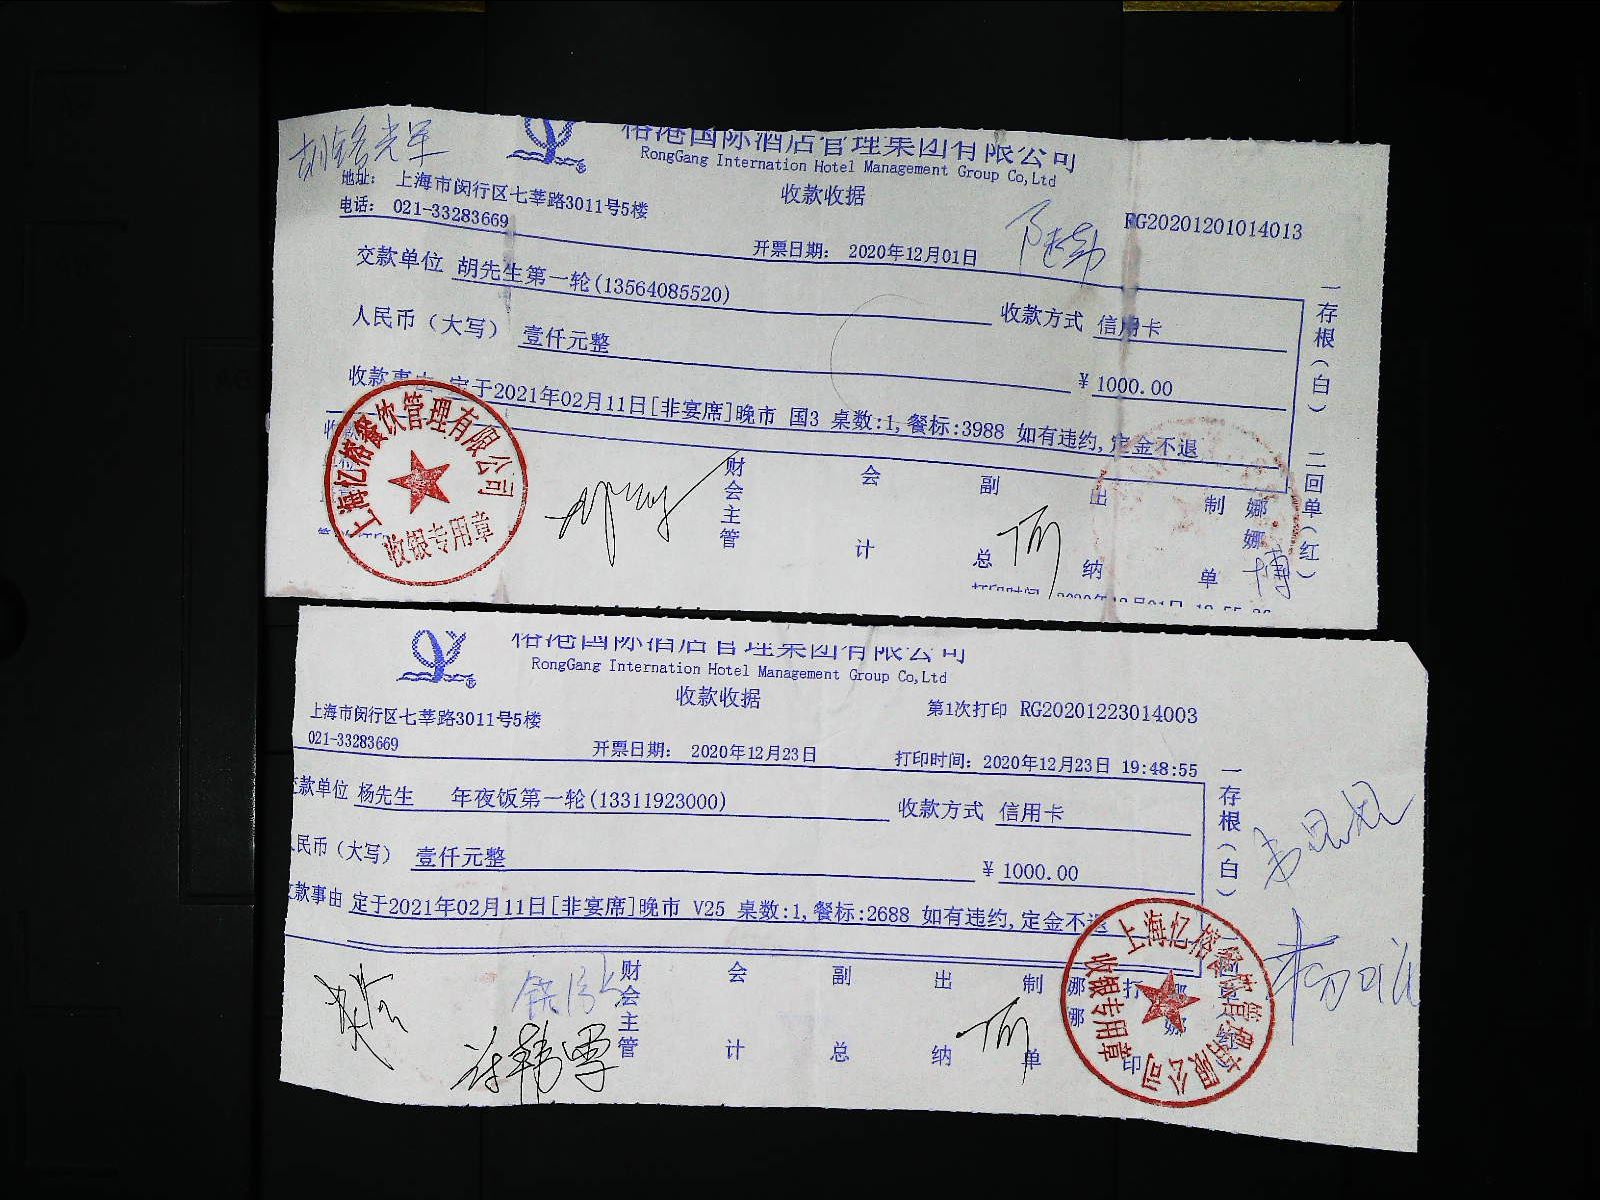 榕港国际酒店管理集团有限公司
RongGang Internation Hotel Management Group Co,Ltd
收款收据
地址： 上海市闵行区七莘路3011号5楼
电话： 021-33283669
RG20201201014013
开票日期： 2020年12月01日
交款单位 胡先生第一轮(13564085520)
收款方式 信用卡
人民币（大写） 壹仟元整
¥ 1000.00
收款事由 定于2021年02月11日[非宴席]晚市 国3 桌数:1,餐标:3988 如有违约,定金不退
一存根（白） 二回单（红）
财会主管 会计 副总 出纳 制单 娜娜
博
上海忆榕餐饮管理有限公司
收银专用章
榕港国际酒店管理集团有限公司
RongGang Internation Hotel Management Group Co,Ltd
收款收据
第1次打印 RG20201223014003
上海市闵行区七莘路3011号5楼
021-33283669
开票日期： 2020年12月23日
打印时间：2020年12月23日 19:48:55
交款单位 杨先生 年夜饭第一轮(13311923000)
收款方式 信用卡
人民币（大写） 壹仟元整
¥ 1000.00
收款事由 定于2021年02月11日[非宴席]晚市 V25 桌数:1,餐标:2688 如有违约,定金不退
一存根（白）
财会主管 会计 副总 出纳 制单 娜娜 打印 娜娜
上海忆榕餐饮管理有限公司
收银专用章